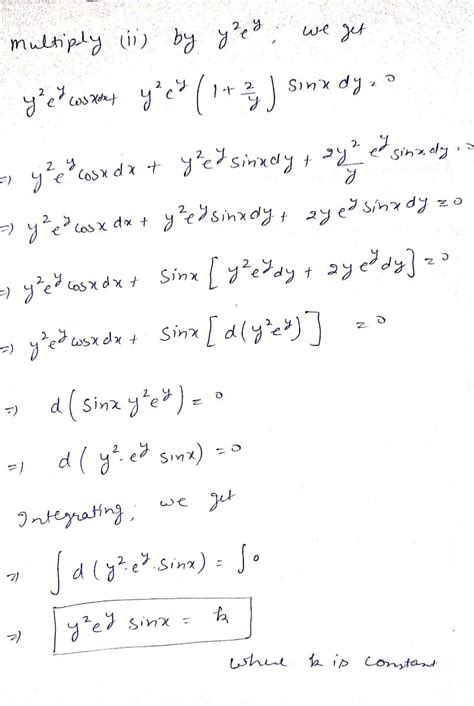 multiply (ii) by y²e^y, we get
y²e^y cosxdx + y²e^y (1 + 2/y) sinx dy = 0
=) y²e^y cosx dx + y²e^y sinxdy + 2y²/y e^y sinxdy = 0
=) y²e^y cosx dx + y²e^y sinxdy + 2y e^y sinx dy = 0
=) y²e^y cosx dx + sinx [ y²e^y dy + 2y e^y dy ] = 0
=) y²e^y cosx dx + sinx [ d(y²e^y) ] = 0
=) d ( sinx y²e^y ) = 0
=) d ( y². e^y sinx) = 0
Integrating, we get
=) ∫ d (y². e^y. sinx) = ∫ 0
=) y²e^y sinx = k
where k is constant